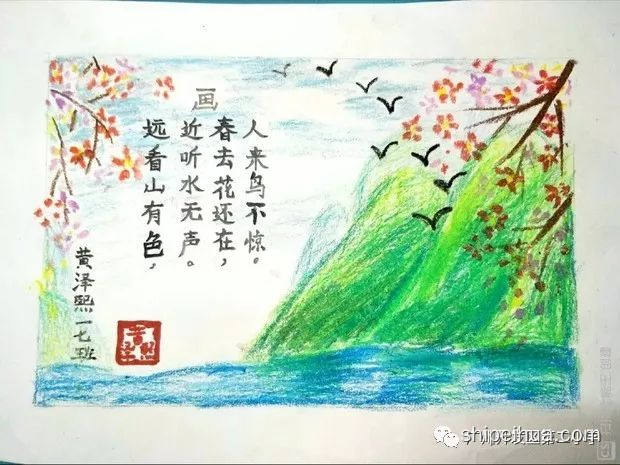 画
远看山有色，
近听水无声。
春去花还在，
人来鸟不惊。
黄泽熙一七班
shipeihua.com